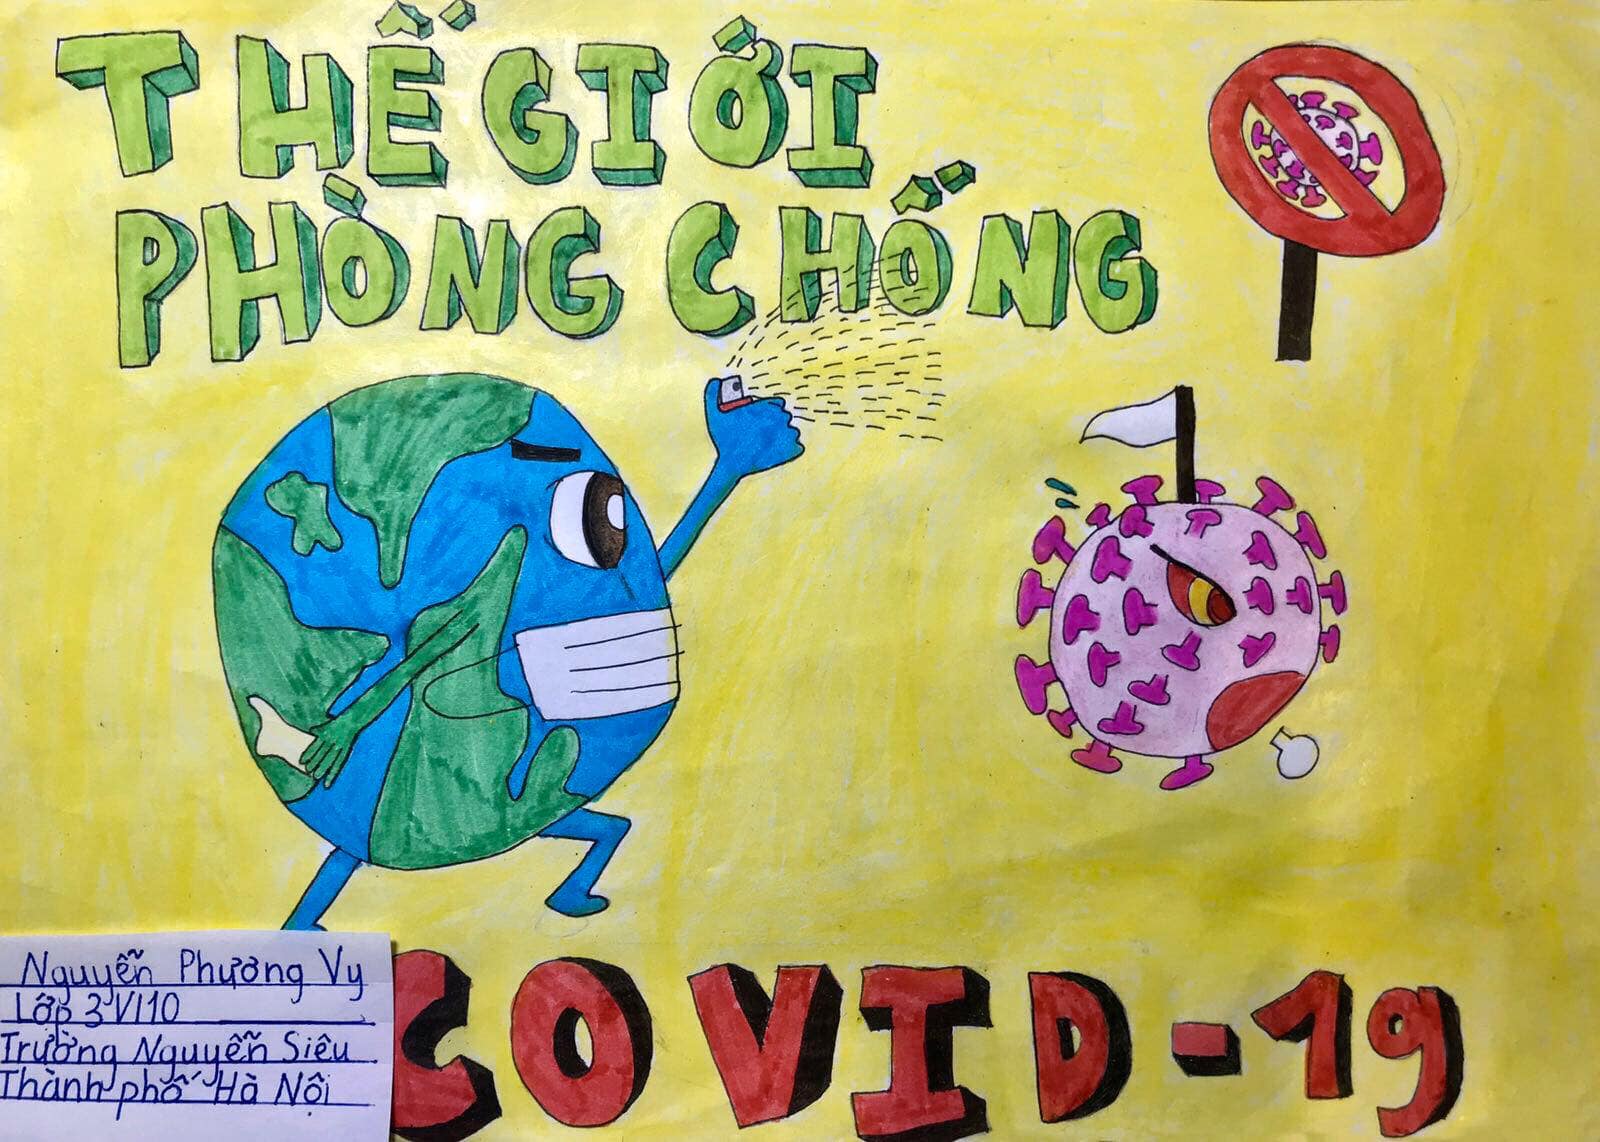 THẾ GIỚI
PHÒNG CHỐNG
COVID-19
Nguyễn Phương Vy
Lớp 3VI10
Trường Nguyễn Siêu
Thành phố Hà Nội